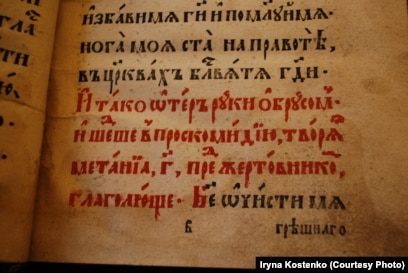 избавимѧ гⷭ҇и и помилꙋймѧ ·
нога моѧ ста на правотѣ,
въ црⷦ҇квахъ блⷭ҇вѧтѧ гдⷭ҇и ·
И тако ѡтеръ рꙋки ѡ брꙋсом ·
и шеше в проскомидїи, творѧ
метанїѧ, г҃, прежертовником,
глаголюще · Бж҃е ѡчисти мѧ
в грѣшнаго
Iryna Kostenko (Courtesy Photo)